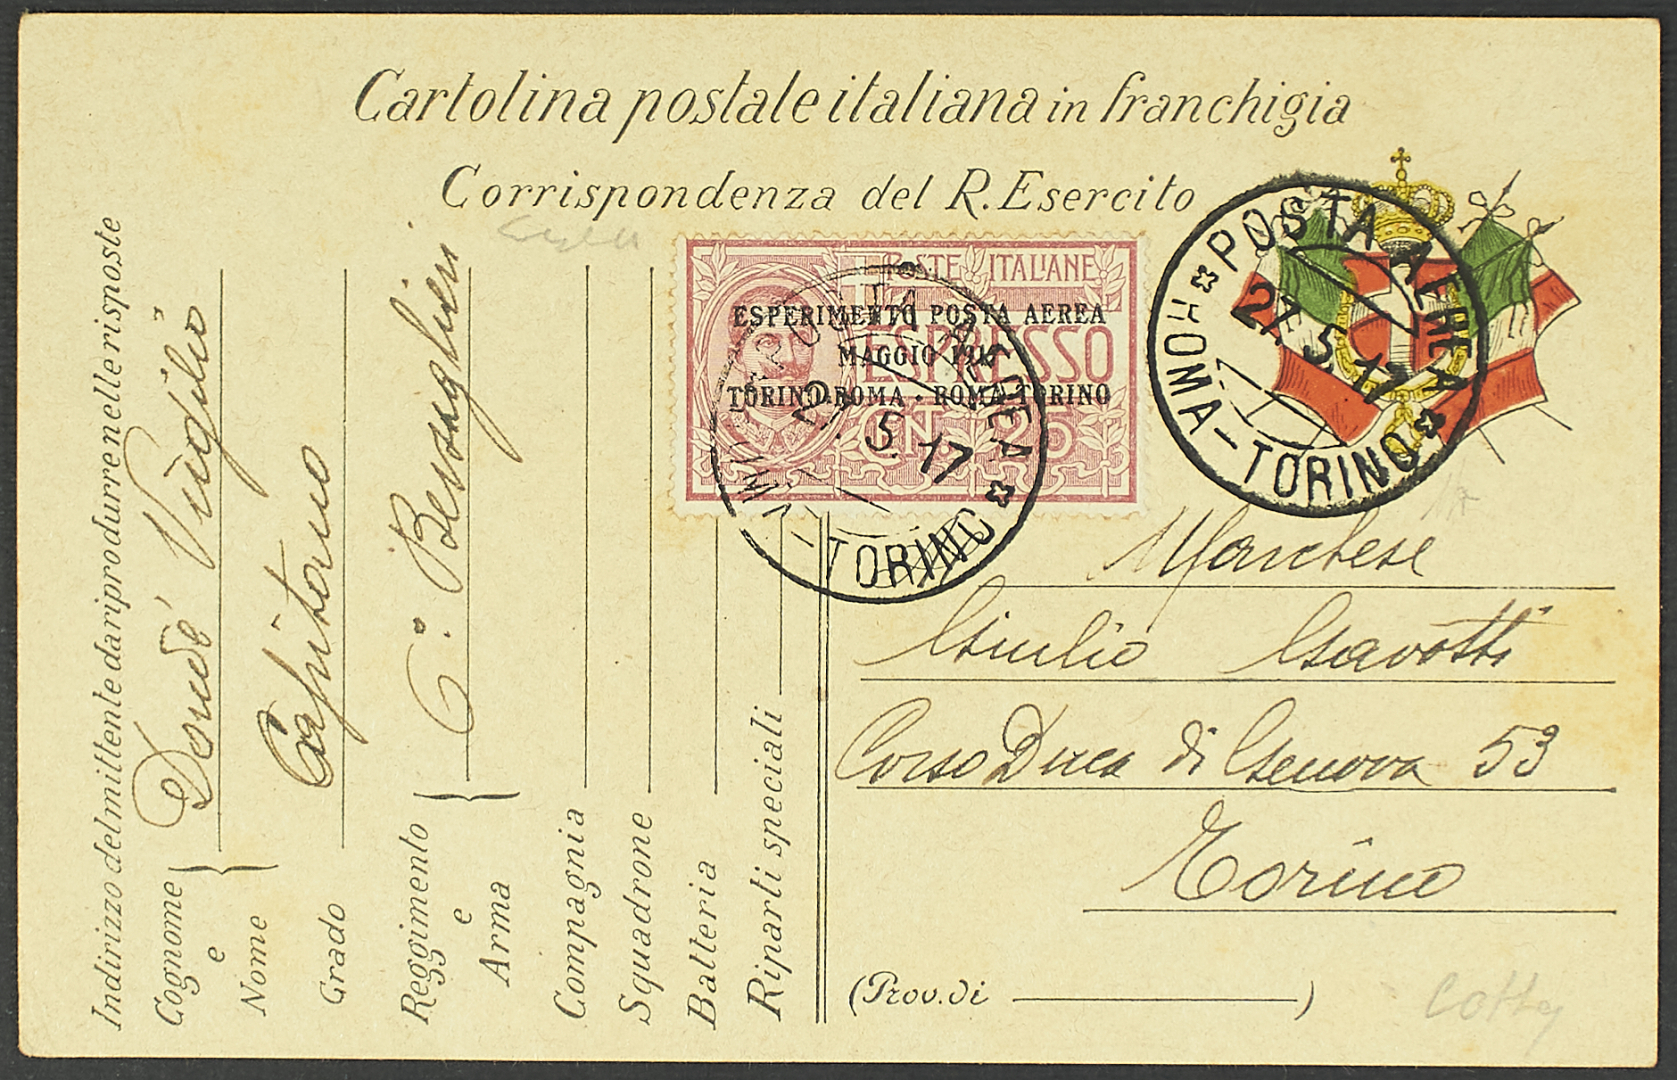 Cartolina postale italiana in franchigia
Corrispondenza del R. Esercito
POSTE ITALIANE
ESPRESSO
CENT. 25
ESPERIMENTO POSTA AEREA
MAGGIO 1917
TORINO-ROMA · ROMA-TORINO
POSTA AEREA
27.5.17
ROMA-TORINO
POSTA AEREA
27.5.17
ROMA-TORINO
Indirizzo del mittente da riprodurre nelle risposte
Cognome e Nome
Dondè Virgilio
Grado
Capitano
Reggimento e Arma
6° Bersaglieri
Compagnia
Squadrone
Batteria
Riparti speciali
Marchese
Giulio Gavotti
Corso Duca di Genova 53
Torino
(Prov. di )